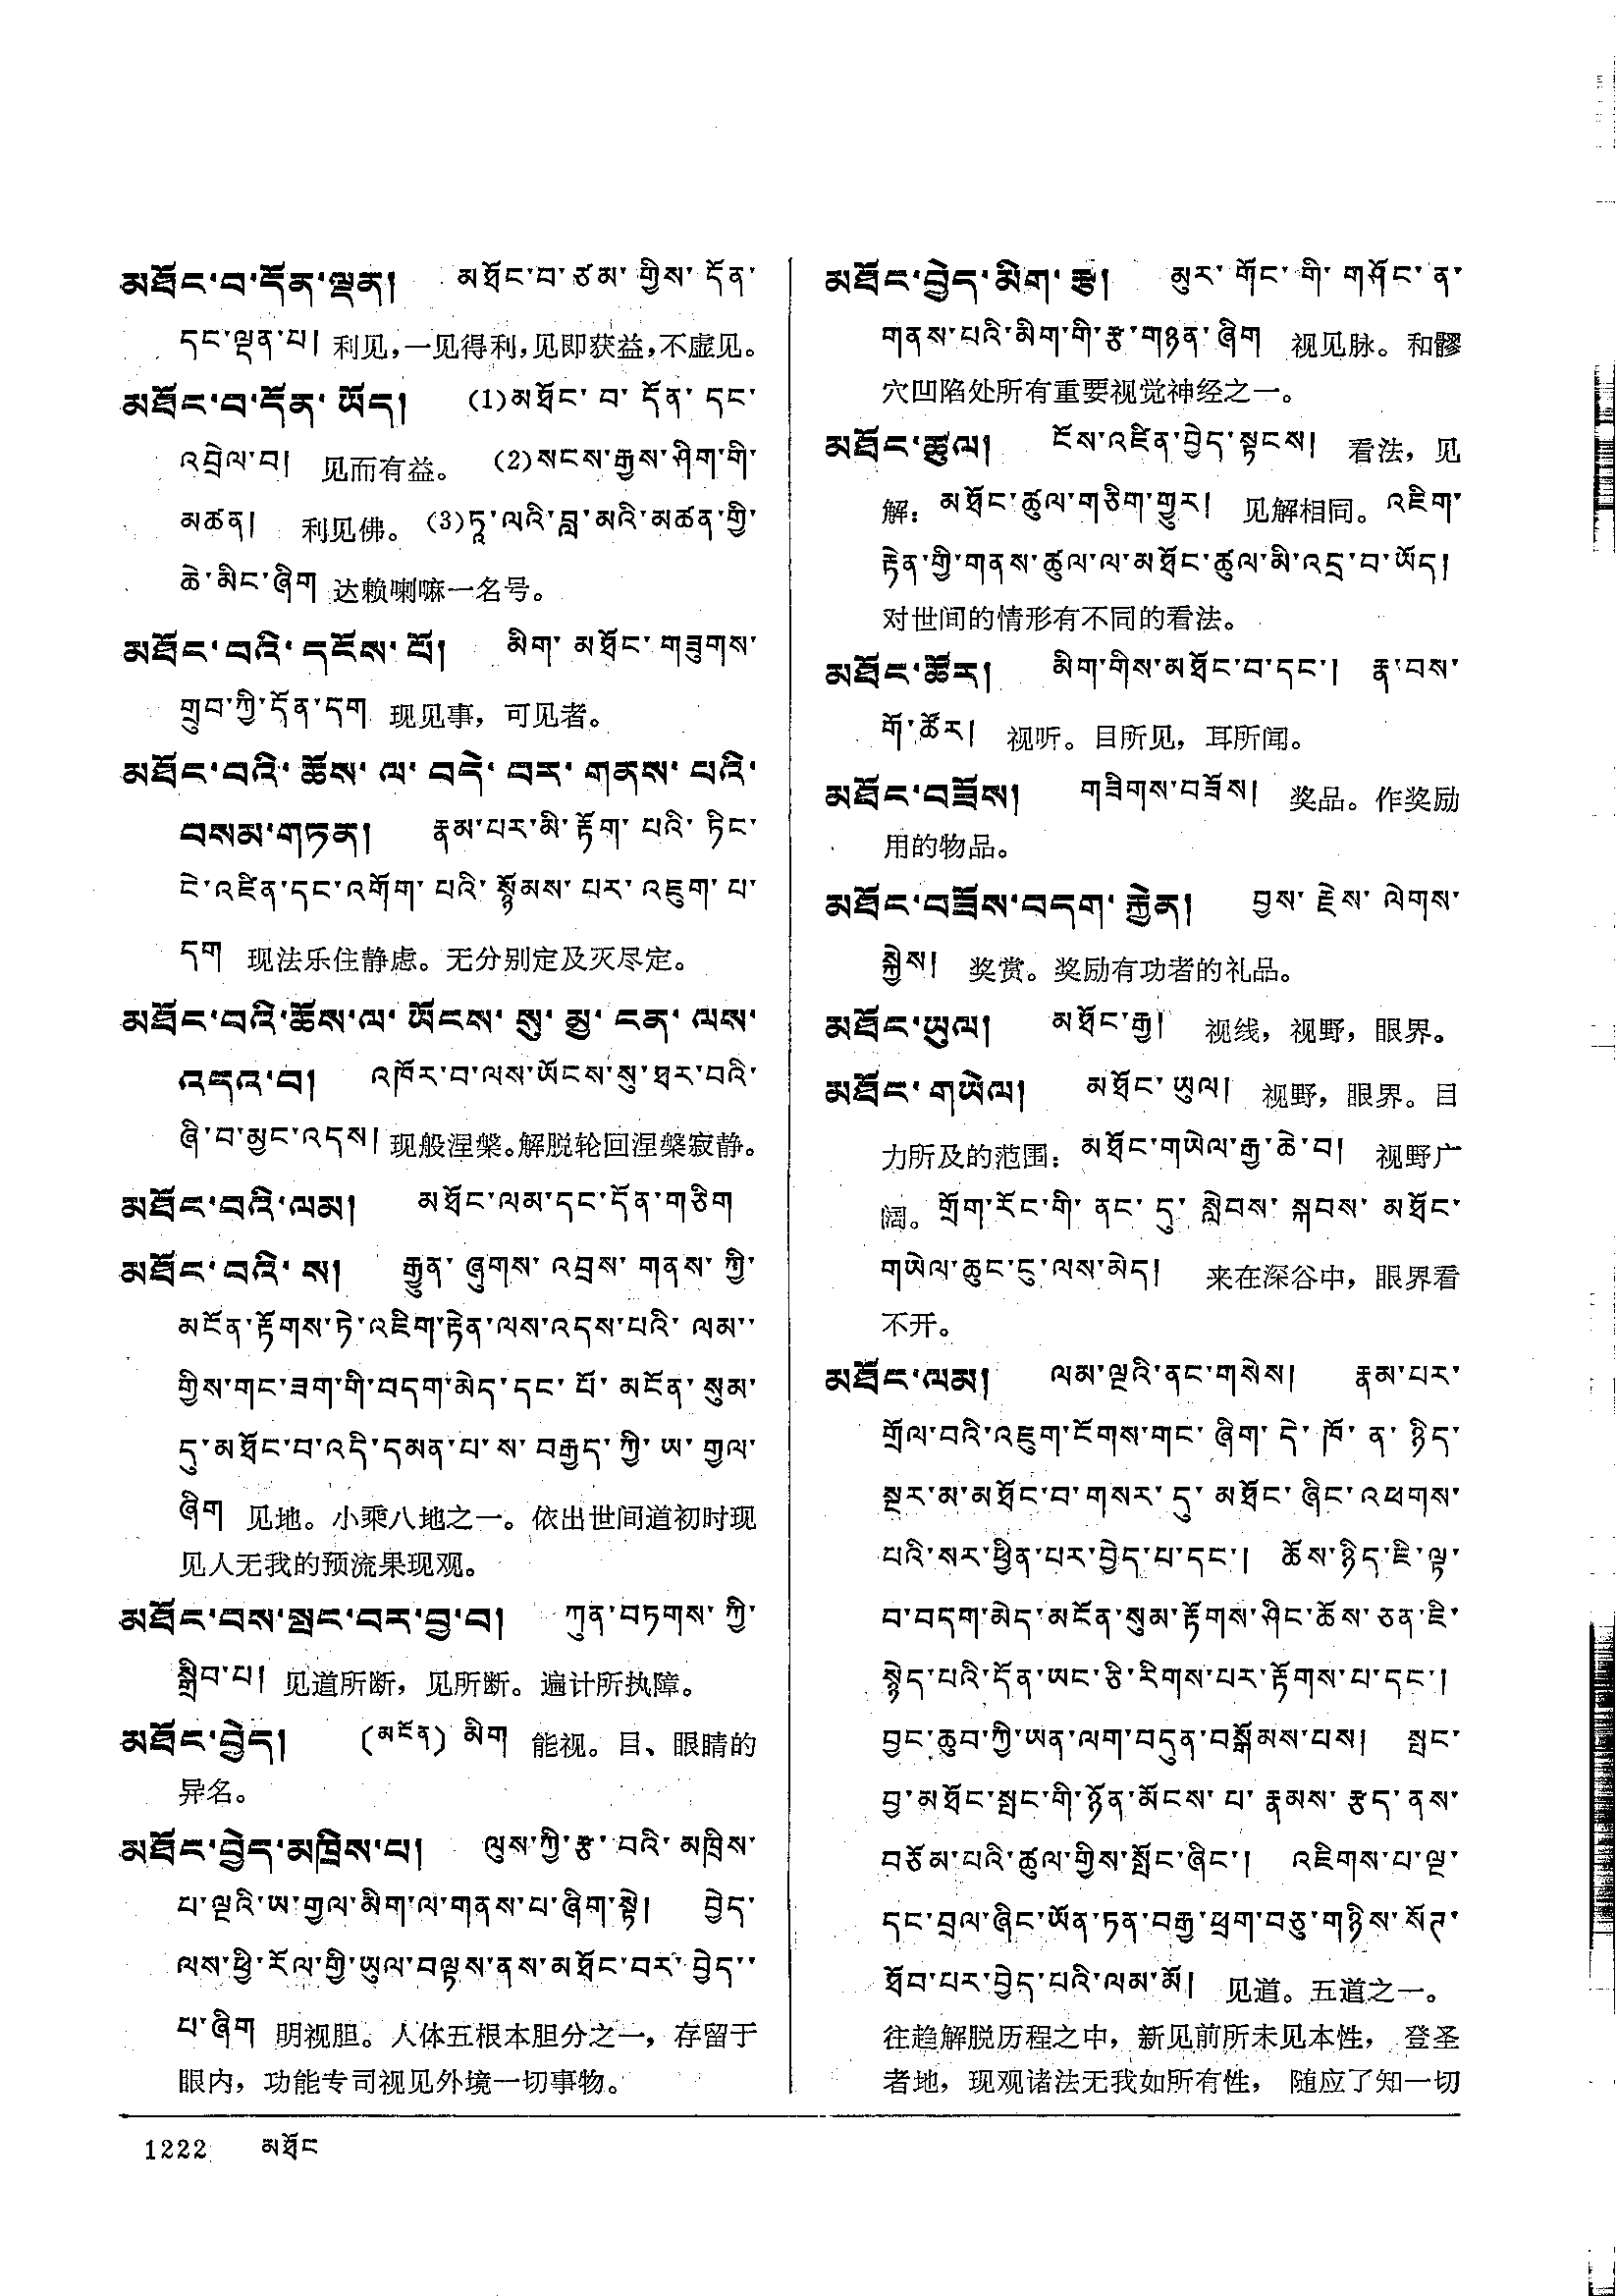 མཐོང་བ་དོན་ལྡན། མཐོང་བ་ཙམ་གྱིས་དོན་
དང་ལྡན་པ། 利见，一见得利，见即获益，不虚见。
མཐོང་བ་དོན་ཡོད། (1)མཐོང་བ་དོན་དང་
འབྲེལ་བ། 见而有益。 (2)སངས་རྒྱས་ཤིག་གི་
མཚན། 利见佛。 (3)ཏཱ་ལའི་བླ་མའི་མཚན་གྱི་
ཆེ་མིང་ཞིག 达赖喇嘛一名号。
མཐོང་བའི་དངོས་པོ། མིག་མཐོང་གཟུགས་
གྲུབ་ཀྱི་དོན་དག 现见事，可见者。
མཐོང་བའི་ཆོས་ལ་བདེ་བར་གནས་པའི་
བསམ་གཏན། རྣམ་པར་མི་རྟོག་པའི་ཏིང་
ངེ་འཛིན་དང་འགོག་པའི་སྙོམས་པར་འཇུག་པ་
དག 现法乐住静虑。无分别定及灭尽定。
མཐོང་བའི་ཆོས་ལ་ཡོངས་སུ་མྱ་ངན་ལས་
འདའ་བ། འཁོར་བ་ལས་ཡོངས་སུ་ཐར་བའི་
ཞི་བ་མྱང་འདས། 现般涅槃。解脱轮回涅槃寂静。
མཐོང་བའི་ལམ། མཐོང་ལམ་དང་དོན་གཅིག
མཐོང་བའི་ས། རྒྱུན་ཞུགས་འབྲས་གནས་ཀྱི་
མངོན་རྟོགས་ཏེ་འཇིག་རྟེན་ལས་འདས་པའི་ལམ་་
གྱིས་གང་ཟག་གི་བདག་མེད་དང་པོ་མངོན་སུམ་
དུ་མཐོང་བ་འདི་དམན་པ་ས་བརྒྱད་ཀྱི་ཡ་གྱལ་
ཞིག 见地。小乘八地之一。依出世间道初时现
见人无我的预流果现观。
མཐོང་བས་སྤང་བར་བྱ་བ། ཀུན་བཏགས་ཀྱི་
སྒྲིབ་པ། 见道所断，见所断。遍计所执障。
མཐོང་བྱེད། (མངོན) མིག 能视。目、眼睛的
异名。
མཐོང་བྱེད་མཁྲིས་པ། ལུས་ཀྱི་རྩ་བའི་མཁྲིས་
པ་ལྔའི་ཡ་གྱལ་མིག་ལ་གནས་པ་ཞིག་སྟེ། བྱེད་
ལས་ཕྱི་རོལ་གྱི་ཡུལ་བལྟས་ནས་མཐོང་བར་བྱེད་་
པ་ཞིག 明视胆。人体五根本胆分之一，存留于
眼内，功能专司视见外境一切事物。
མཐོང་བྱེད་མིག་རྩ། མུར་གོང་གི་གཤོང་ན་
གནས་པའི་མིག་གི་རྩ་གཉན་ཞིག 视见脉。和髎
穴凹陷处所有重要视觉神经之一。
མཐོང་ཚུལ། ངོས་འཛིན་བྱེད་སྟངས། 看法，见
解：མཐོང་ཚུལ་གཅིག་གྱུར། 见解相同。འཇིག་
རྟེན་གྱི་གནས་ཚུལ་ལ་མཐོང་ཚུལ་མི་འདྲ་བ་ཡོད།
对世间的情形有不同的看法。
མཐོང་ཚོར། མིག་གིས་མཐོང་བ་དང་། རྣ་བས་
གོ་ཚོར། 视听。目所见，耳所闻。
མཐོང་བཟོས། གཟིགས་བཟོས། 奖品。作奖励
用的物品。
མཐོང་བཟོས་བདག་རྐྱེན། བྱས་རྗེས་ལེགས་
སྐྱེས། 奖赏。奖励有功者的礼品。
མཐོང་ཡུལ། མཐོང་རྒྱ། 视线，视野，眼界。
མཐོང་གཡེལ། མཐོང་ཡུལ། 视野，眼界。目
力所及的范围：མཐོང་གཡེལ་རྒྱ་ཆེ་བ། 视野广
阔。གྲོག་རོང་གི་ནང་དུ་སླེབས་སྐབས་མཐོང་
གཡེལ་ཆུང་ངུ་ལས་མེད། 来在深谷中，眼界看
不开。
མཐོང་ལམ། ལམ་ལྔའི་ནང་གསེས། རྣམ་པར་
གྲོལ་བའི་འཇུག་ངོགས་གང་ཞིག་དེ་ཁོ་ན་ཉིད་
སྔར་མ་མཐོང་བ་གསར་དུ་མཐོང་ཞིང་འཕགས་
པའི་སར་ཕྱིན་པར་བྱེད་པ་དང་། ཆོས་ཉིད་ཇི་ལྟ་
བ་བདག་མེད་མངོན་སུམ་རྟོགས་ཤིང་ཆོས་ཅན་ཇི་
སྙེད་པའི་དོན་ཡང་ཅི་རིགས་པར་རྟོགས་པ་དང་།
བྱང་ཆུབ་ཀྱི་ཡན་ལག་བདུན་བསྒོམས་པས། སྤང་
བྱ་མཐོང་སྤང་གི་ཉོན་མོངས་པ་རྣམས་རྩད་ནས་
བཅོམ་པའི་ཚུལ་གྱིས་སྤོང་ཞིང་། འཇིགས་པ་ལྔ་
དང་བྲལ་ཞིང་ཡོན་ཏན་བརྒྱ་ཕྲག་བཅུ་གཉིས་སོཊ་
ཐོབ་པར་བྱེད་པའི་ལམ་མོ། 见道。五道之一。
往趋解脱历程之中，新见前所未见本性，登圣
者地，现观诸法无我如所有性，随应了知一切
1222 མཐོང